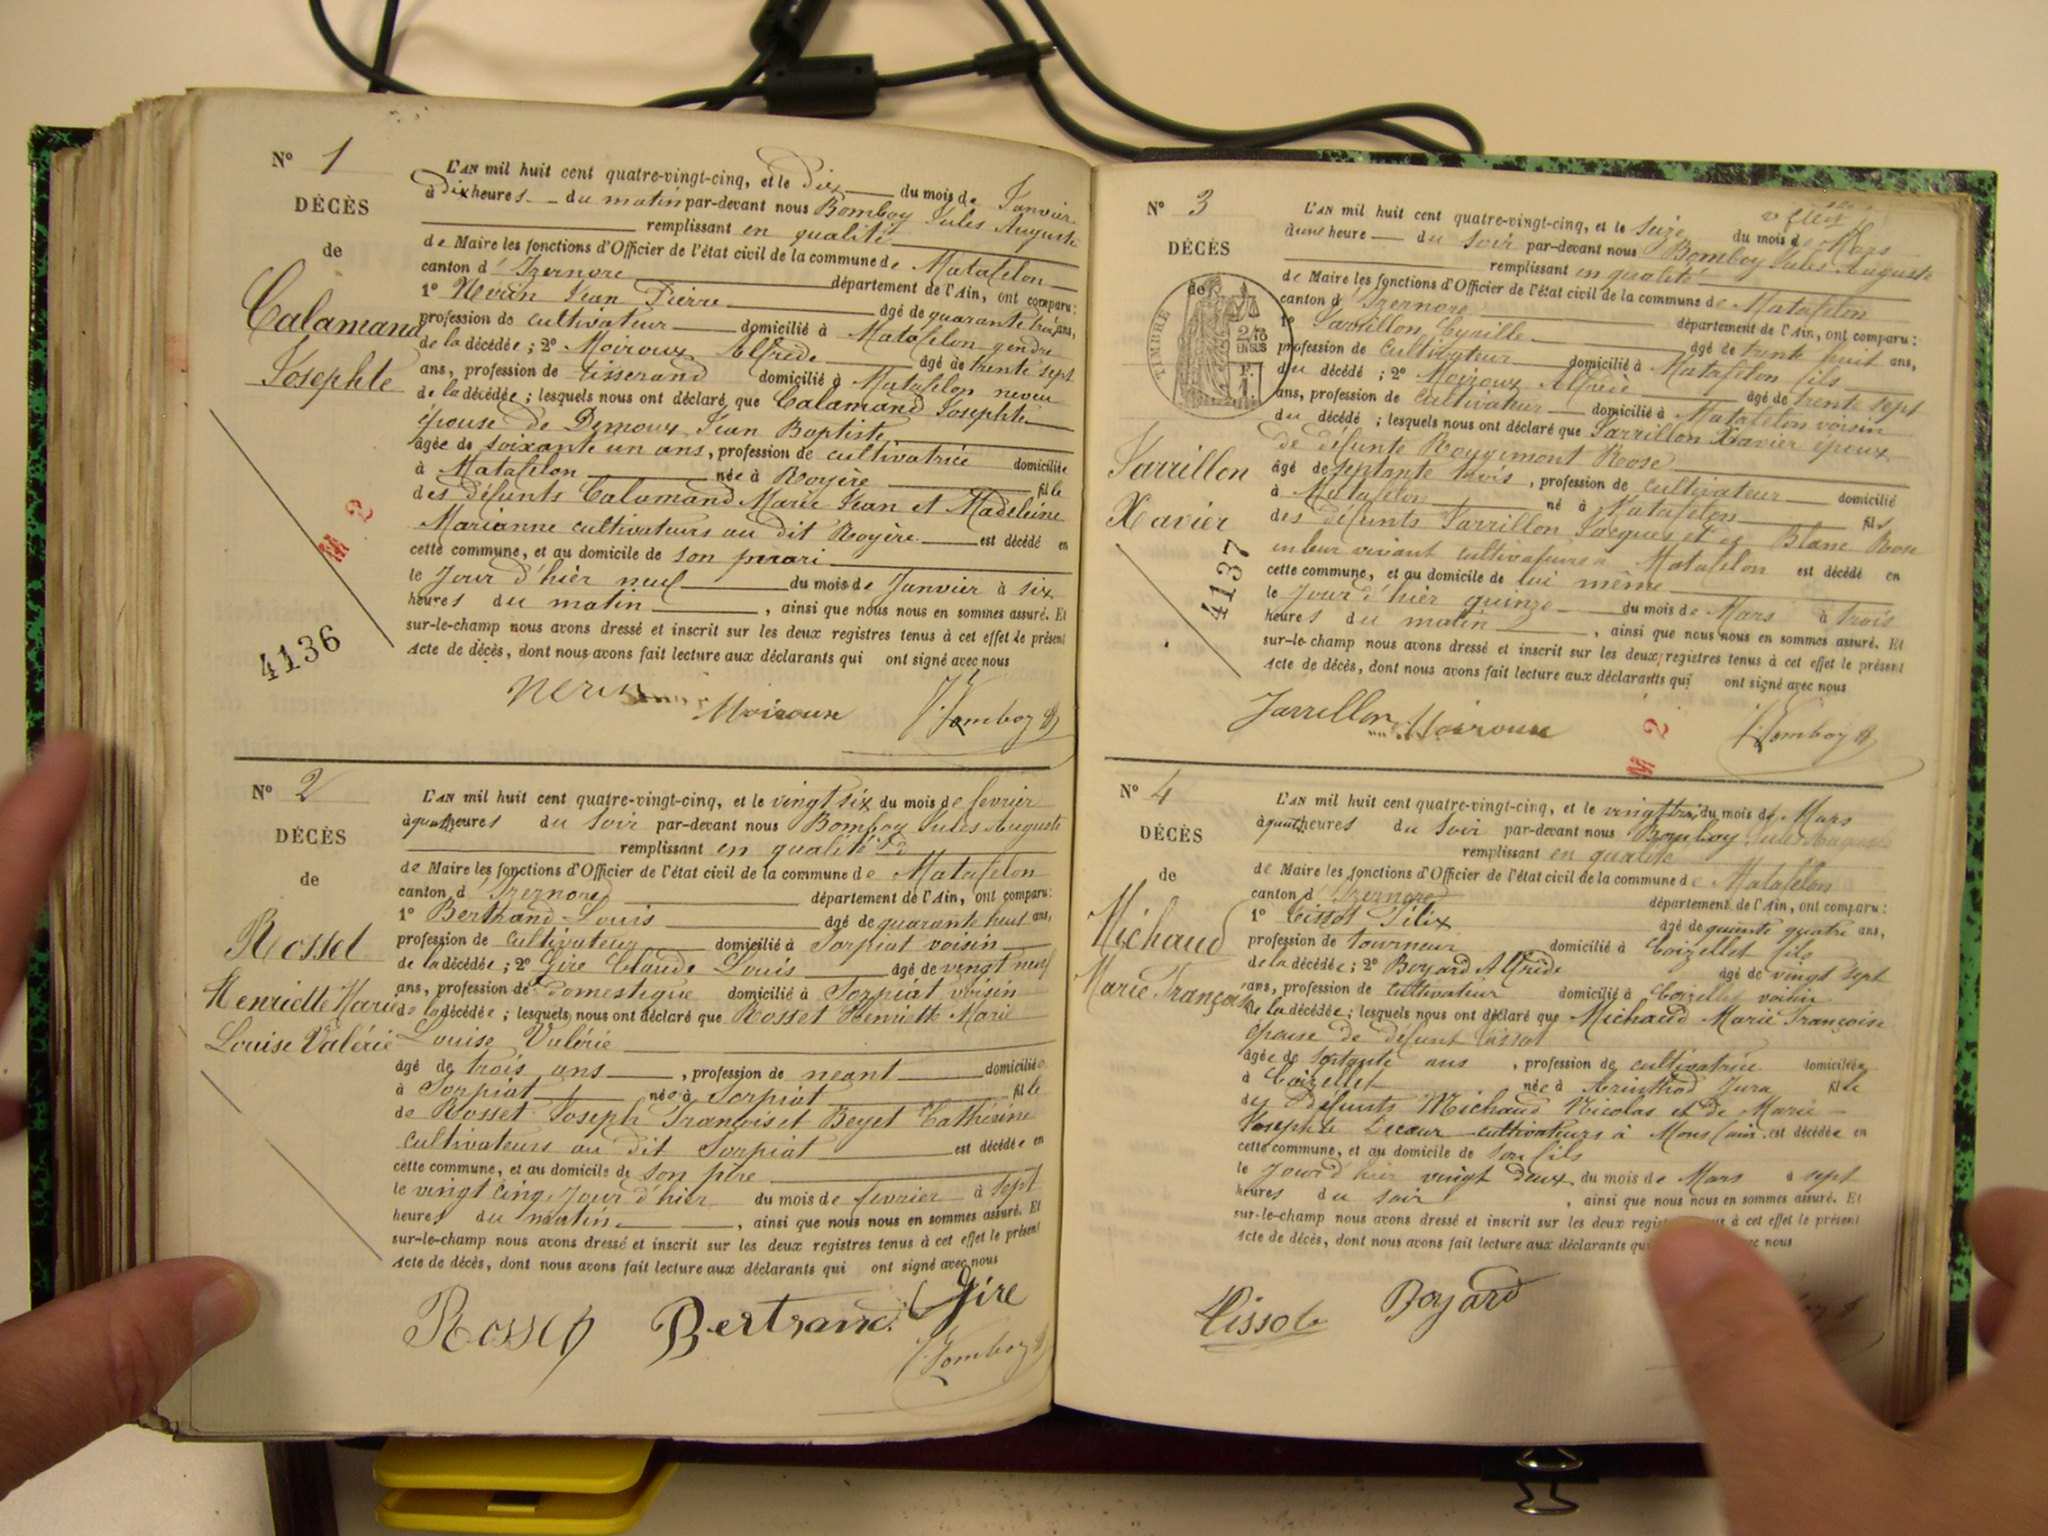 N° 1
DÉCÈS
de
Calamand
Josephte
M 2
4136
L'AN mil huit cent quatre-vingt-cinq, et le dix du mois de Janvier
à dix heures du matin par-devant nous Bomboy Jules Auguste
remplissant en qualité
de Maire les fonctions d'Officier de l'état civil de la commune de Matafelon
canton d'Izernore département de l'Ain, ont comparu:
1° Nerin Jean Pierre âgé de quarante trois ans,
profession de cultivateur domicilié à Matafelon gendre
de la décédée; 2° Moiroux Alfrède âgé de trente sept
ans, profession de tisserand domicilié à Matafelon neveu
de la décédée; lesquels nous ont déclaré que Calamand Josephte
épouse de Demoux Jean Baptiste
âgée de soixante un ans, profession de cultivatrice domiciliée
à Matafelon née à Royère fille
des défunts Calamand Marie Jean et Madeleine
Marianne cultivateurs au dit Royère est décédé en
cette commune, et au domicile de son mari
le Jour d'hier neuf du mois de Janvier à six
heures du matin, ainsi que nous nous en sommes assuré. Et
sur-le-champ nous avons dressé et inscrit sur les deux registres tenus à cet effet le présent
Acte de décès, dont nous avons fait lecture aux déclarants qui ont signé avec nous
Nerin Moiroux J. Bomboy
N° 2
DÉCÈS
de
Rosset
Henriette Marie
Louise Valérie
L'AN mil huit cent quatre-vingt-cinq, et le vingt six du mois de fevrier
à quatre heures du soir par-devant nous Bomboy Jules Auguste
remplissant en qualité
de Maire les fonctions d'Officier de l'état civil de la commune de Matafelon
canton d'Izernore département de l'Ain, ont comparu:
1° Bertrand Louis âgé de quarante huit ans,
profession de cultivateur domicilié à Sorpiat voisin
de la décédée; 2° Gire Claude Louis âgé de vingt neuf
ans, profession de domestique domicilié à Sorpiat voisin
de la décédée; lesquels nous ont déclaré que Rosset Henriette Marie
Louise Valérie
âgé de trois ans, profession de neant domiciliée
à Sorpiat née à Sorpiat fille
de Rosset Joseph François et Beyet Cathérine
cultivateurs au dit Sorpiat est décédée en
cette commune, et au domicile de son père
le vingt cinq Jour d'hier du mois de fevrier à sept
heures du matin, ainsi que nous nous en sommes assuré. Et
sur-le-champ nous avons dressé et inscrit sur les deux registres tenus à cet effet le présent
Acte de décès, dont nous avons fait lecture aux déclarants qui ont signé avec nous
Rosset Bertrand Gire
J. Bomboy
N° 3
DÉCÈS
de
TIMBRE
Jarrillon
Xavier
4137
L'AN mil huit cent quatre-vingt-cinq, et le seize du mois de Mars
à une heure du soir par-devant nous Bomboy Jules Auguste
remplissant en qualité
de Maire les fonctions d'Officier de l'état civil de la commune de Matafelon
canton d'Izernore département de l'Ain, ont comparu:
1° Jarrillon Cyrille âgé de trente huit ans,
profession de cultivateur domicilié à Matafelon fils
du décédé; 2° Moiroux Alfrède âgé de trente sept
ans, profession de cultivateur domicilié à Matafelon voisin
du décédé; lesquels nous ont déclaré que Jarrillon Xavier époux
de défunte Rougimont Rose
âgé de septante trois, profession de cultivateur domicilié
à Matafelon né à Matafelon fils
des défunts Jarrillon Jacques et Blanc Rose
en leur vivant cultivateurs à Matafelon est décédé en
cette commune, et au domicile de lui même
le Jour d'hier quinze du mois de Mars à trois
heures du matin, ainsi que nous nous en sommes assuré. Et
sur-le-champ nous avons dressé et inscrit sur les deux registres tenus à cet effet le présent
Acte de décès, dont nous avons fait lecture aux déclarants qui ont signé avec nous
Jarrillon Moiroux J. Bomboy
M 2
N° 4
DÉCÈS
de
Michaud
Marie Françoise
L'AN mil huit cent quatre-vingt-cinq, et le vingt trois du mois de Mars
à quatre heures du soir par-devant nous Bomboy Jules Auguste
remplissant en qualité
de Maire les fonctions d'Officier de l'état civil de la commune de Matafelon
canton d'Izernore département de l'Ain, ont comparu:
1° Tissot Félix âgé de quatre ans,
profession de tourneur domicilié à Coizellet fils
de la décédée; 2° Boyard Alfrède âgé de vingt sept
ans, profession de cultivateur domicilié à Coizellet voisin
de la décédée; lesquels nous ont déclaré que Michaud Marie Françoise
épouse de défunt Tissot
âgée de septante ans, profession de cultivatrice domiciliée
à Coizellet née à Arinthod Jura fille
des défunts Michaud Nicolas et de Marie
Josephte Decœur cultivateurs à est décédée en
cette commune, et au domicile de son fils
le Jour d'hier vingt deux du mois de Mars à sept
heures du soir, ainsi que nous nous en sommes assuré. Et
sur-le-champ nous avons dressé et inscrit sur les deux à cet effet le présent
Acte de décès, dont nous avons fait lecture aux déclarants qui avec nous
Tissot Boyard